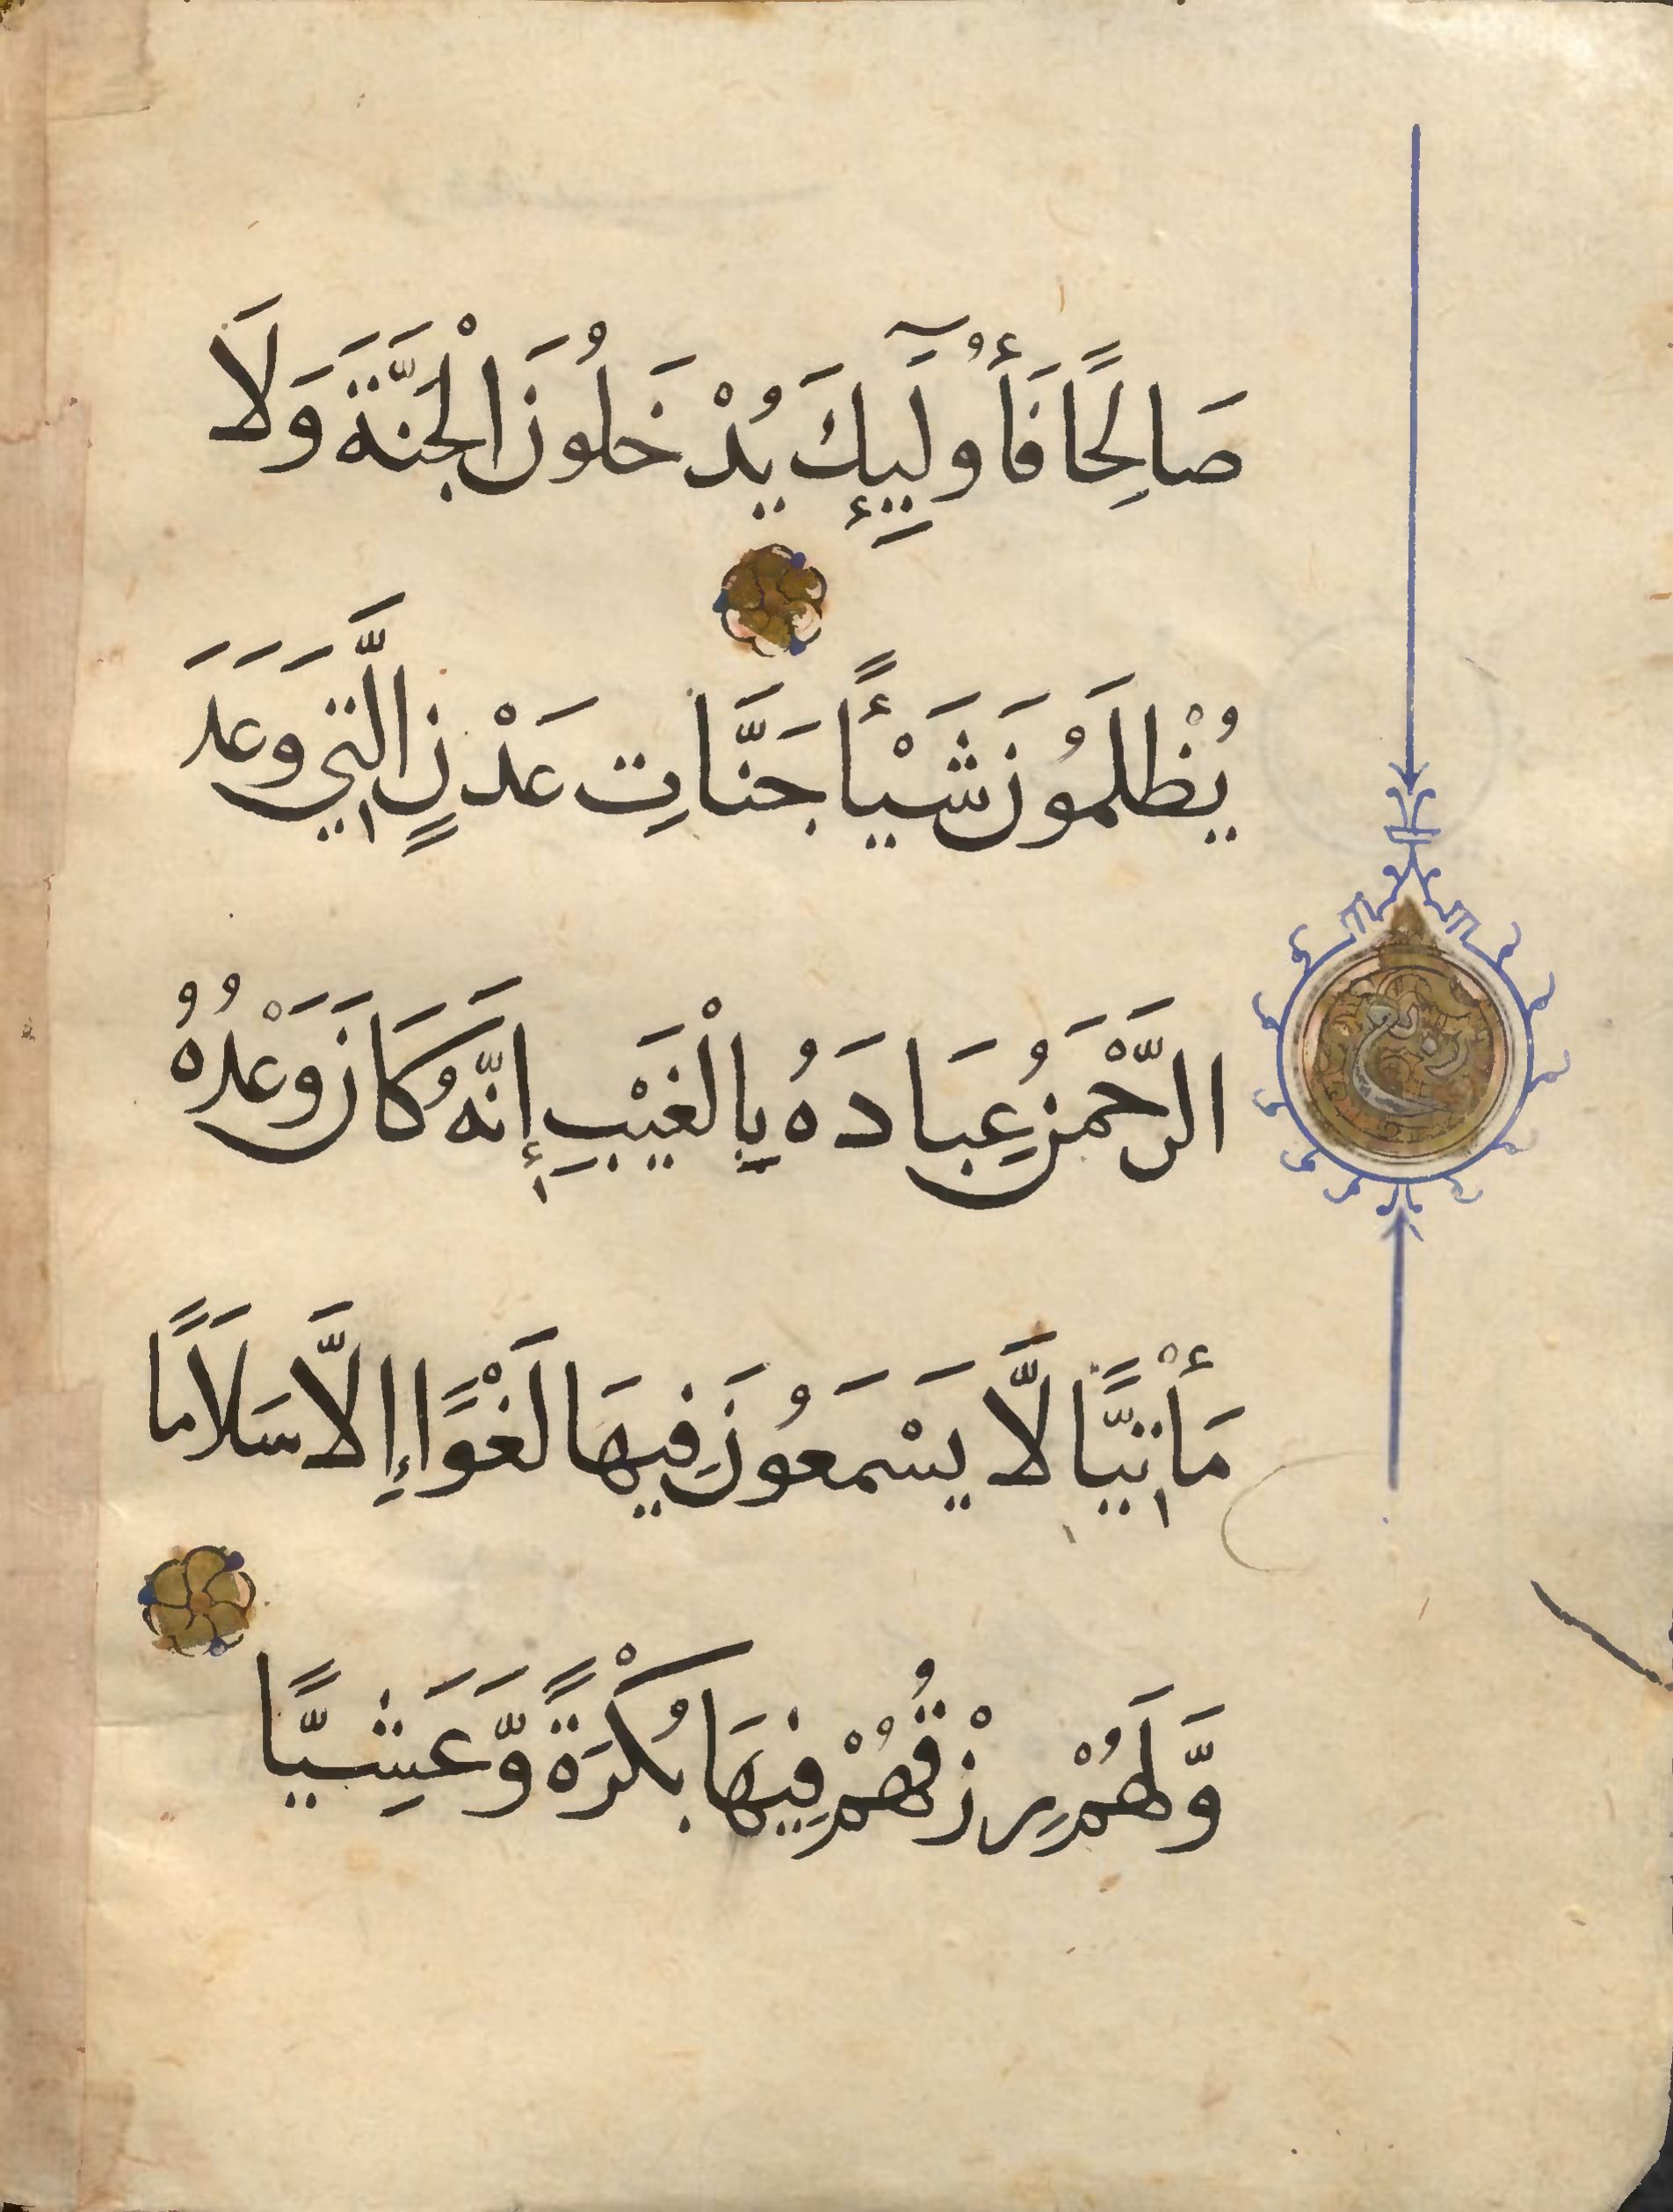 صَالِحًا فَأُولَٰٓئِكَ يُدْخَلُونَ الْجَنَّةَ وَلَا
يُظْلَمُونَ شَيْأً جَنَّاتِ عَدْنٍ الَّتِي وَعَدَ
الرَّحْمَنُ عِبَادَهُ بِالْغَيْبِ إِنَّهُ كَانَ وَعْدُهُ
مَأْتِيًّا لَّا يَسْمَعُونَ فِيهَا لَغْوًا إِلَّا سَلَامًا
وَّلَهُمْ رِزْقُهُمْ فِيهَا بُكْرَةً وَّعَشِيًّا